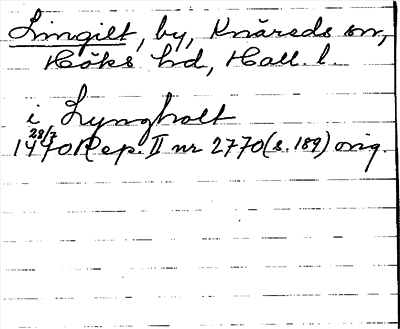 Lingilt, by, Knäreds sn,
Höks hd, Hall. l.
i Lyngholt
28/7
1470 Rep. II nr 2770 (s. 189) orig.